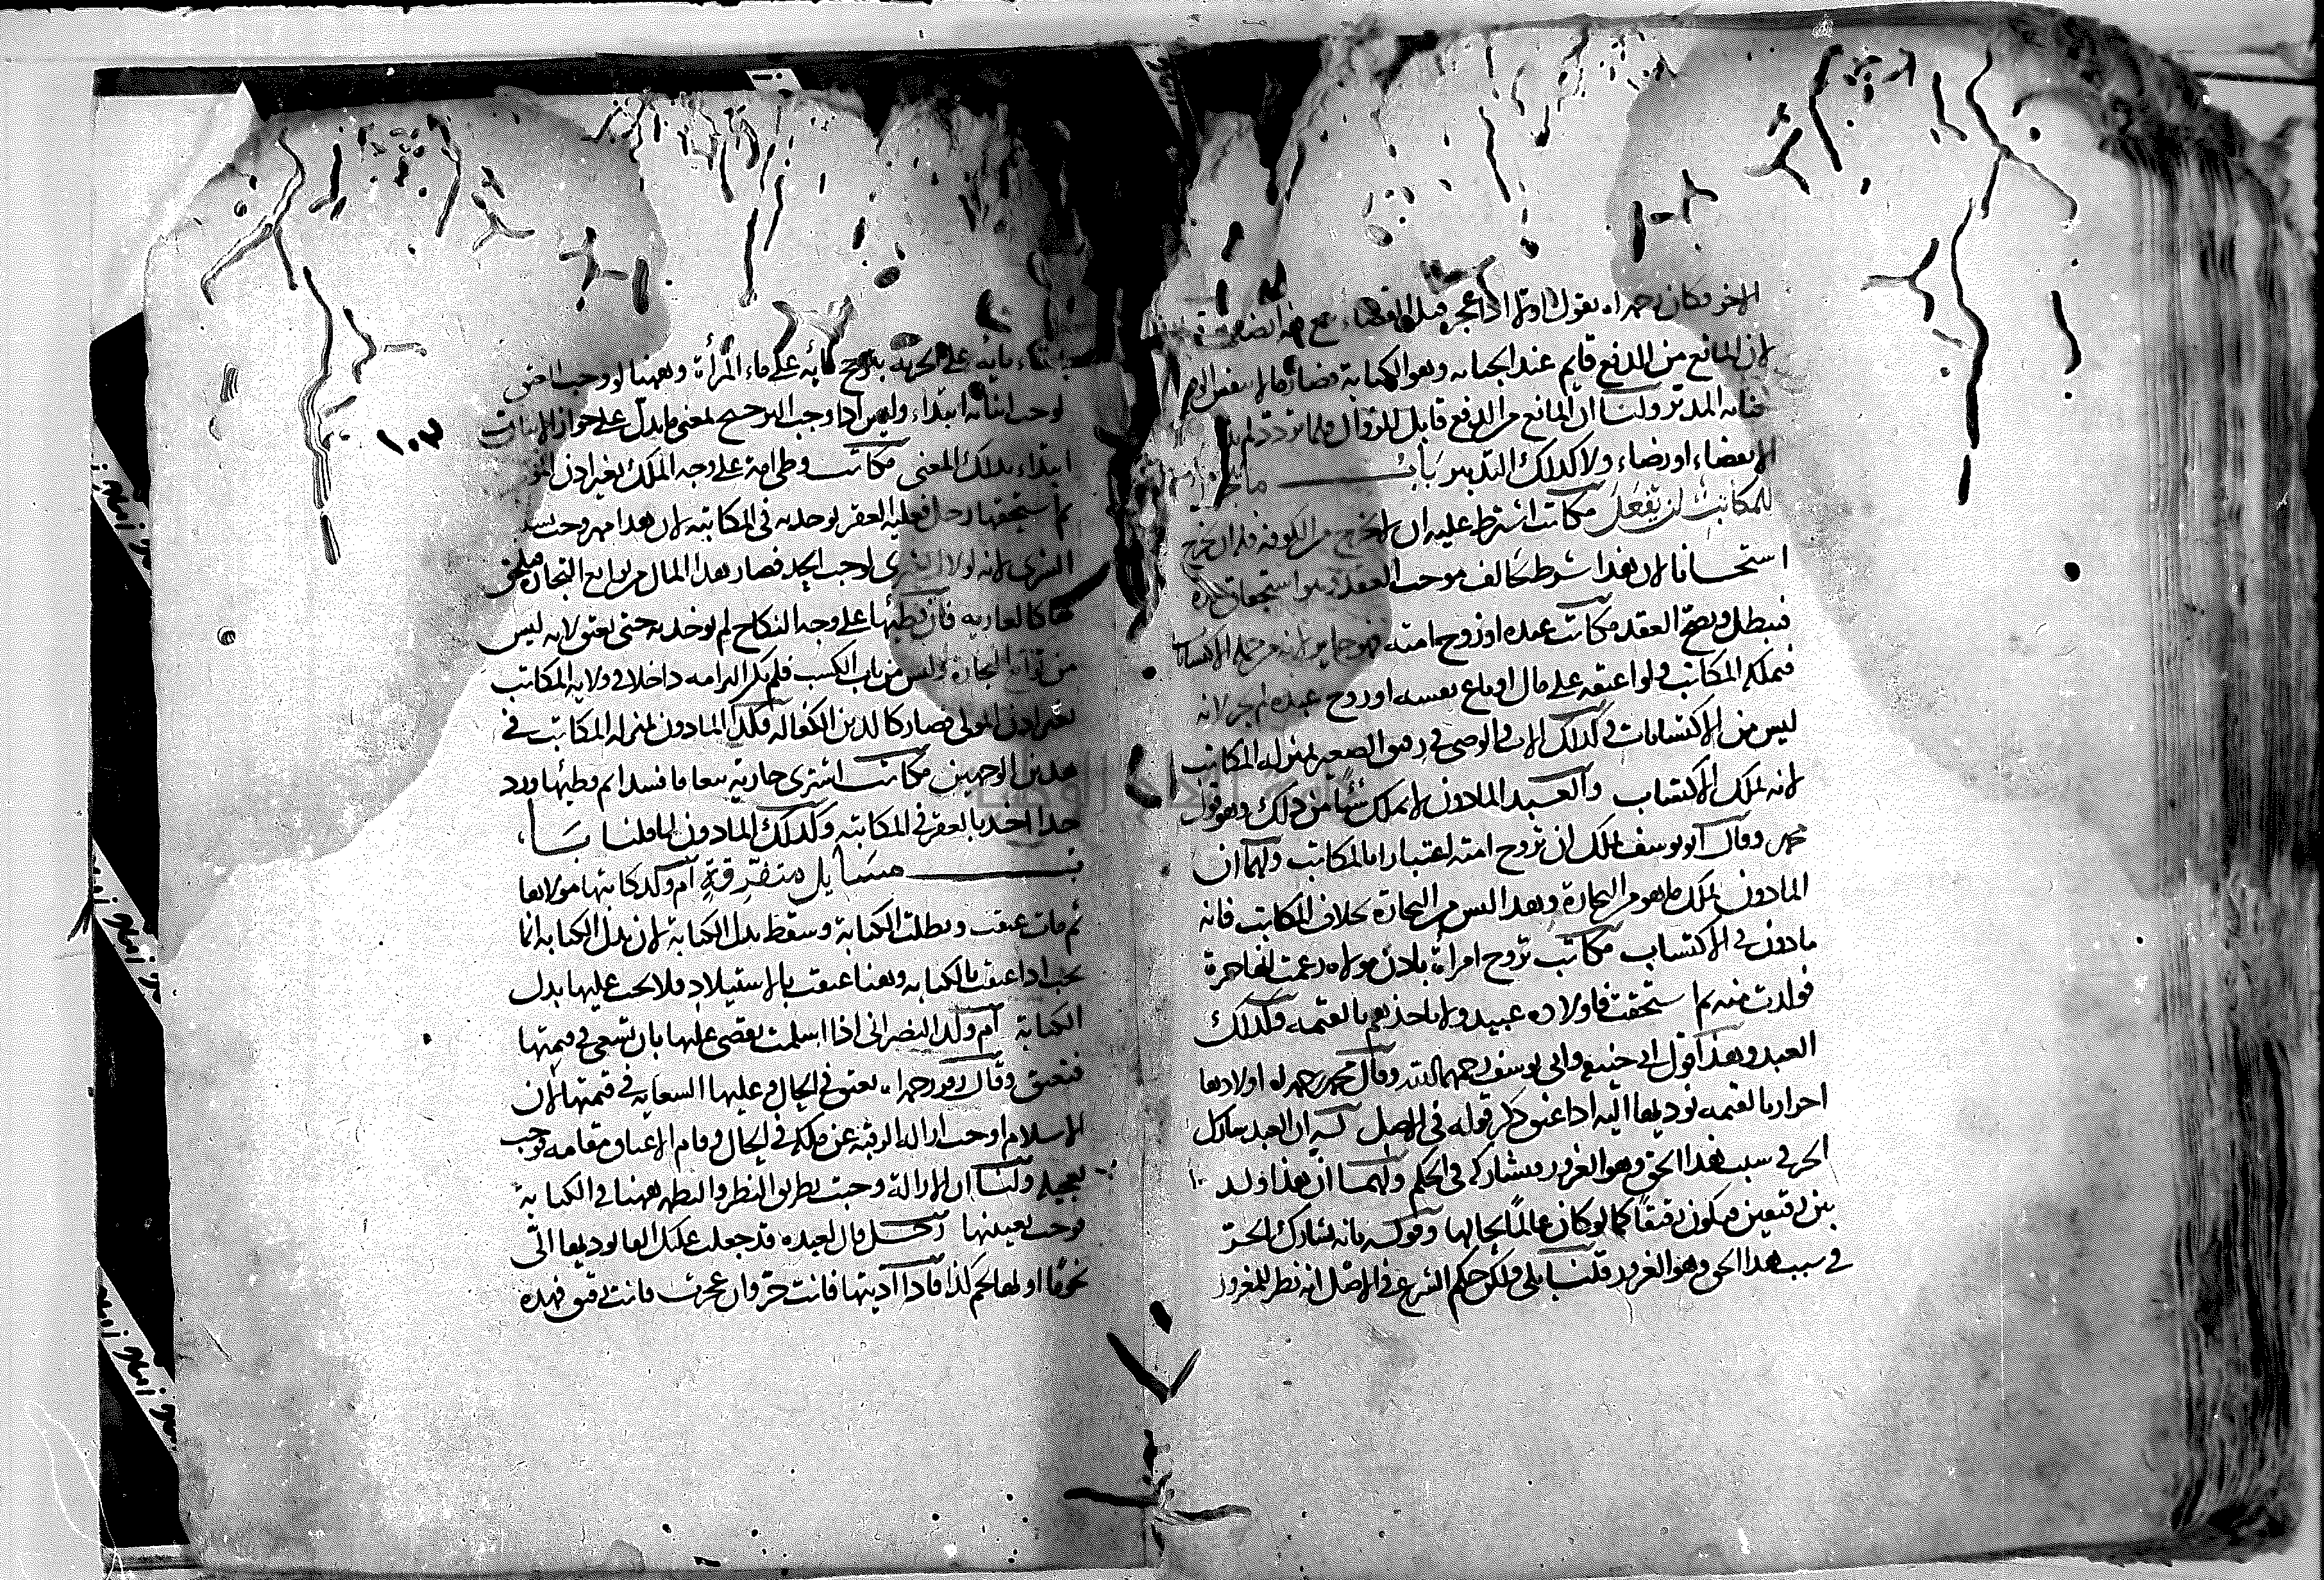 الآخر وكان رحمه الله يقول اولا اذا عجز قبل القضاء
لان المانع من الدفع قايم عند الجنايه وهو الكتابة فصار
جنايه المدبر ولنا ان المانع من الدفع قابل للزوال فلما تردد لم
الا بقضاء او رضاء ولا كذلك التدبير باب ما يجوز
للمكاتب ان يفعل مكاتب اشترط عليه ان لا يخرج من الكوفه فله ان يخرج
استحسانا لان هذا شرط مخالف موجب العقد
فبطل ويصح العقد مكاتب عبده او زوج امته فهو جايز لانه من جمله الاكتساب
فيملكه المكاتب ولو اعتقه على مال او باع نفسه او زوج عبده لم يجز لانه
ليس من الاكتسابات وكذلك الاب والوصي في رقيق الصغير بمنزله المكاتب
لانه يملك الاكتساب والعبد الماذون لا يملك شيئا من ذلك وهو قول
محمد وقال ابو يوسف يملك ان يزوج امته اعتبارا بالمكاتب ولهما ان
الماذون يملك ما هو من التجارة وهذا ليس من التجارة بخلاف المكاتب فانه
ماذون في الاكتساب مكاتب تزوج امراة باذن مولاه زعمت انها حرة
فولدت منه ثم استحقت فاولاده عبيد ولا ياخذهم بالقيمه وكذلك
العبد وهذا قول ابي حنيفه وابي يوسف رحمهما الله وقال محمد رحمه الله اولادها
احرار بالقيمه يوديها اليه اذا عتق ذكر قوله في الاصل له ان العبد شارك
الحر في سبب هذا الحق وهو الغرور فيشاركه في الحكم ولهما ان هذا ولد
بين رقيقين فيكون رقيقا كما لو كان عالما بحالها وقوله بانه شارك الحر
في سبب هذا الحق وهو الغرور قلنا بلى ولكن حكم الشرع في الاصل انه نظر للمغرور
مايه على الحريه يترجح مايه على ماء المرأة وههنا لو وجب العتق
لوجب اثباته ابتداء وليس اذا وجب الترجيح لمعنى ما يدل على جواز الاثبات
ابتداء بذلك المعنى مكاتب وطى امة على وجه الملك بغير اذن المولى
ثم استحقها رجل فعليه العقر يوخذ به في المكاتبه لان هذا مهر وجب بسبب
الشرى لانه لولا الشرى لوجب الحد فصار هذا المال من توابع التجارة
كالعاريه فان وطيها على وجه النكاح لم يوخذ به حتى يعتق لانه ليس
من توابع التجارة وليس من باب الكسب فلم يكن التزامه داخلا في ولايه المكاتب
بغير اذن المولى فصار كالدين الكفاله وكذا الماذون بمنزله المكاتب في
هذين الوجهين مكاتب اشترى جاريه بيعا فاسدا ثم وطيها ورد
اخذ بالعقر في المكاتبه وكذلك الماذون لما قلنا با
ب مسايل متفرقة ام ولد كاتبها مولاها
ثم مات عتقت وبطلت الكتابة وسقط بدل الكتابة لان بدل الكتابه انما
يجب اذا عتقت بالكتابه وههنا عتقت بالاستيلاد فلا يجب عليها بدل
الكتابة ام ولد النصراني اذا اسلمت يقضى عليها بان تسعى في قيمتها
فتعتق وقال زفر رحمه الله يعتق في الحال وعليها السعايه في قيمتها لان
الاسلام اوجب ازاله الرقبه عن ملكه في الحال وقام الاعتاق مقامه فوجب
تعجيله ولنا ان الازالة وجبت بطريق النظر والنظر ههنا في الكتابة
فوجب تعيينها رجل قال لعبده قد جعلت عليك الفا توديها الي
نجوما اولها نجم كذا فاذا اديتها فانت حر وان عجزت فانت رقيق فهذه
١٠٣